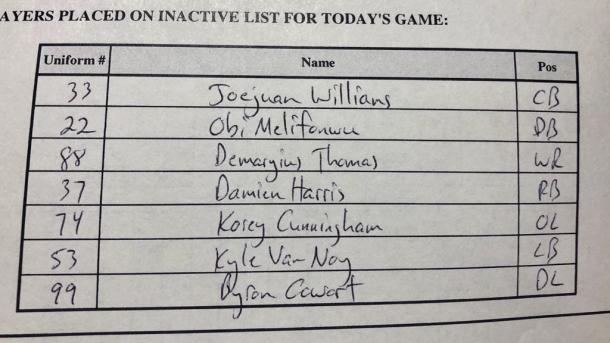 AYERS PLACED ON INACTIVE LIST FOR TODAY'S GAME:
Uniform # Name Pos
33 Joejuan Willians CB
22 Obi Melifonwu DB
88 Demaryius Thomas WR
37 Damien Harris RB
74 Korey Cunningham OL
53 Kyle Van Noy LB
99 Byron Cowart DL